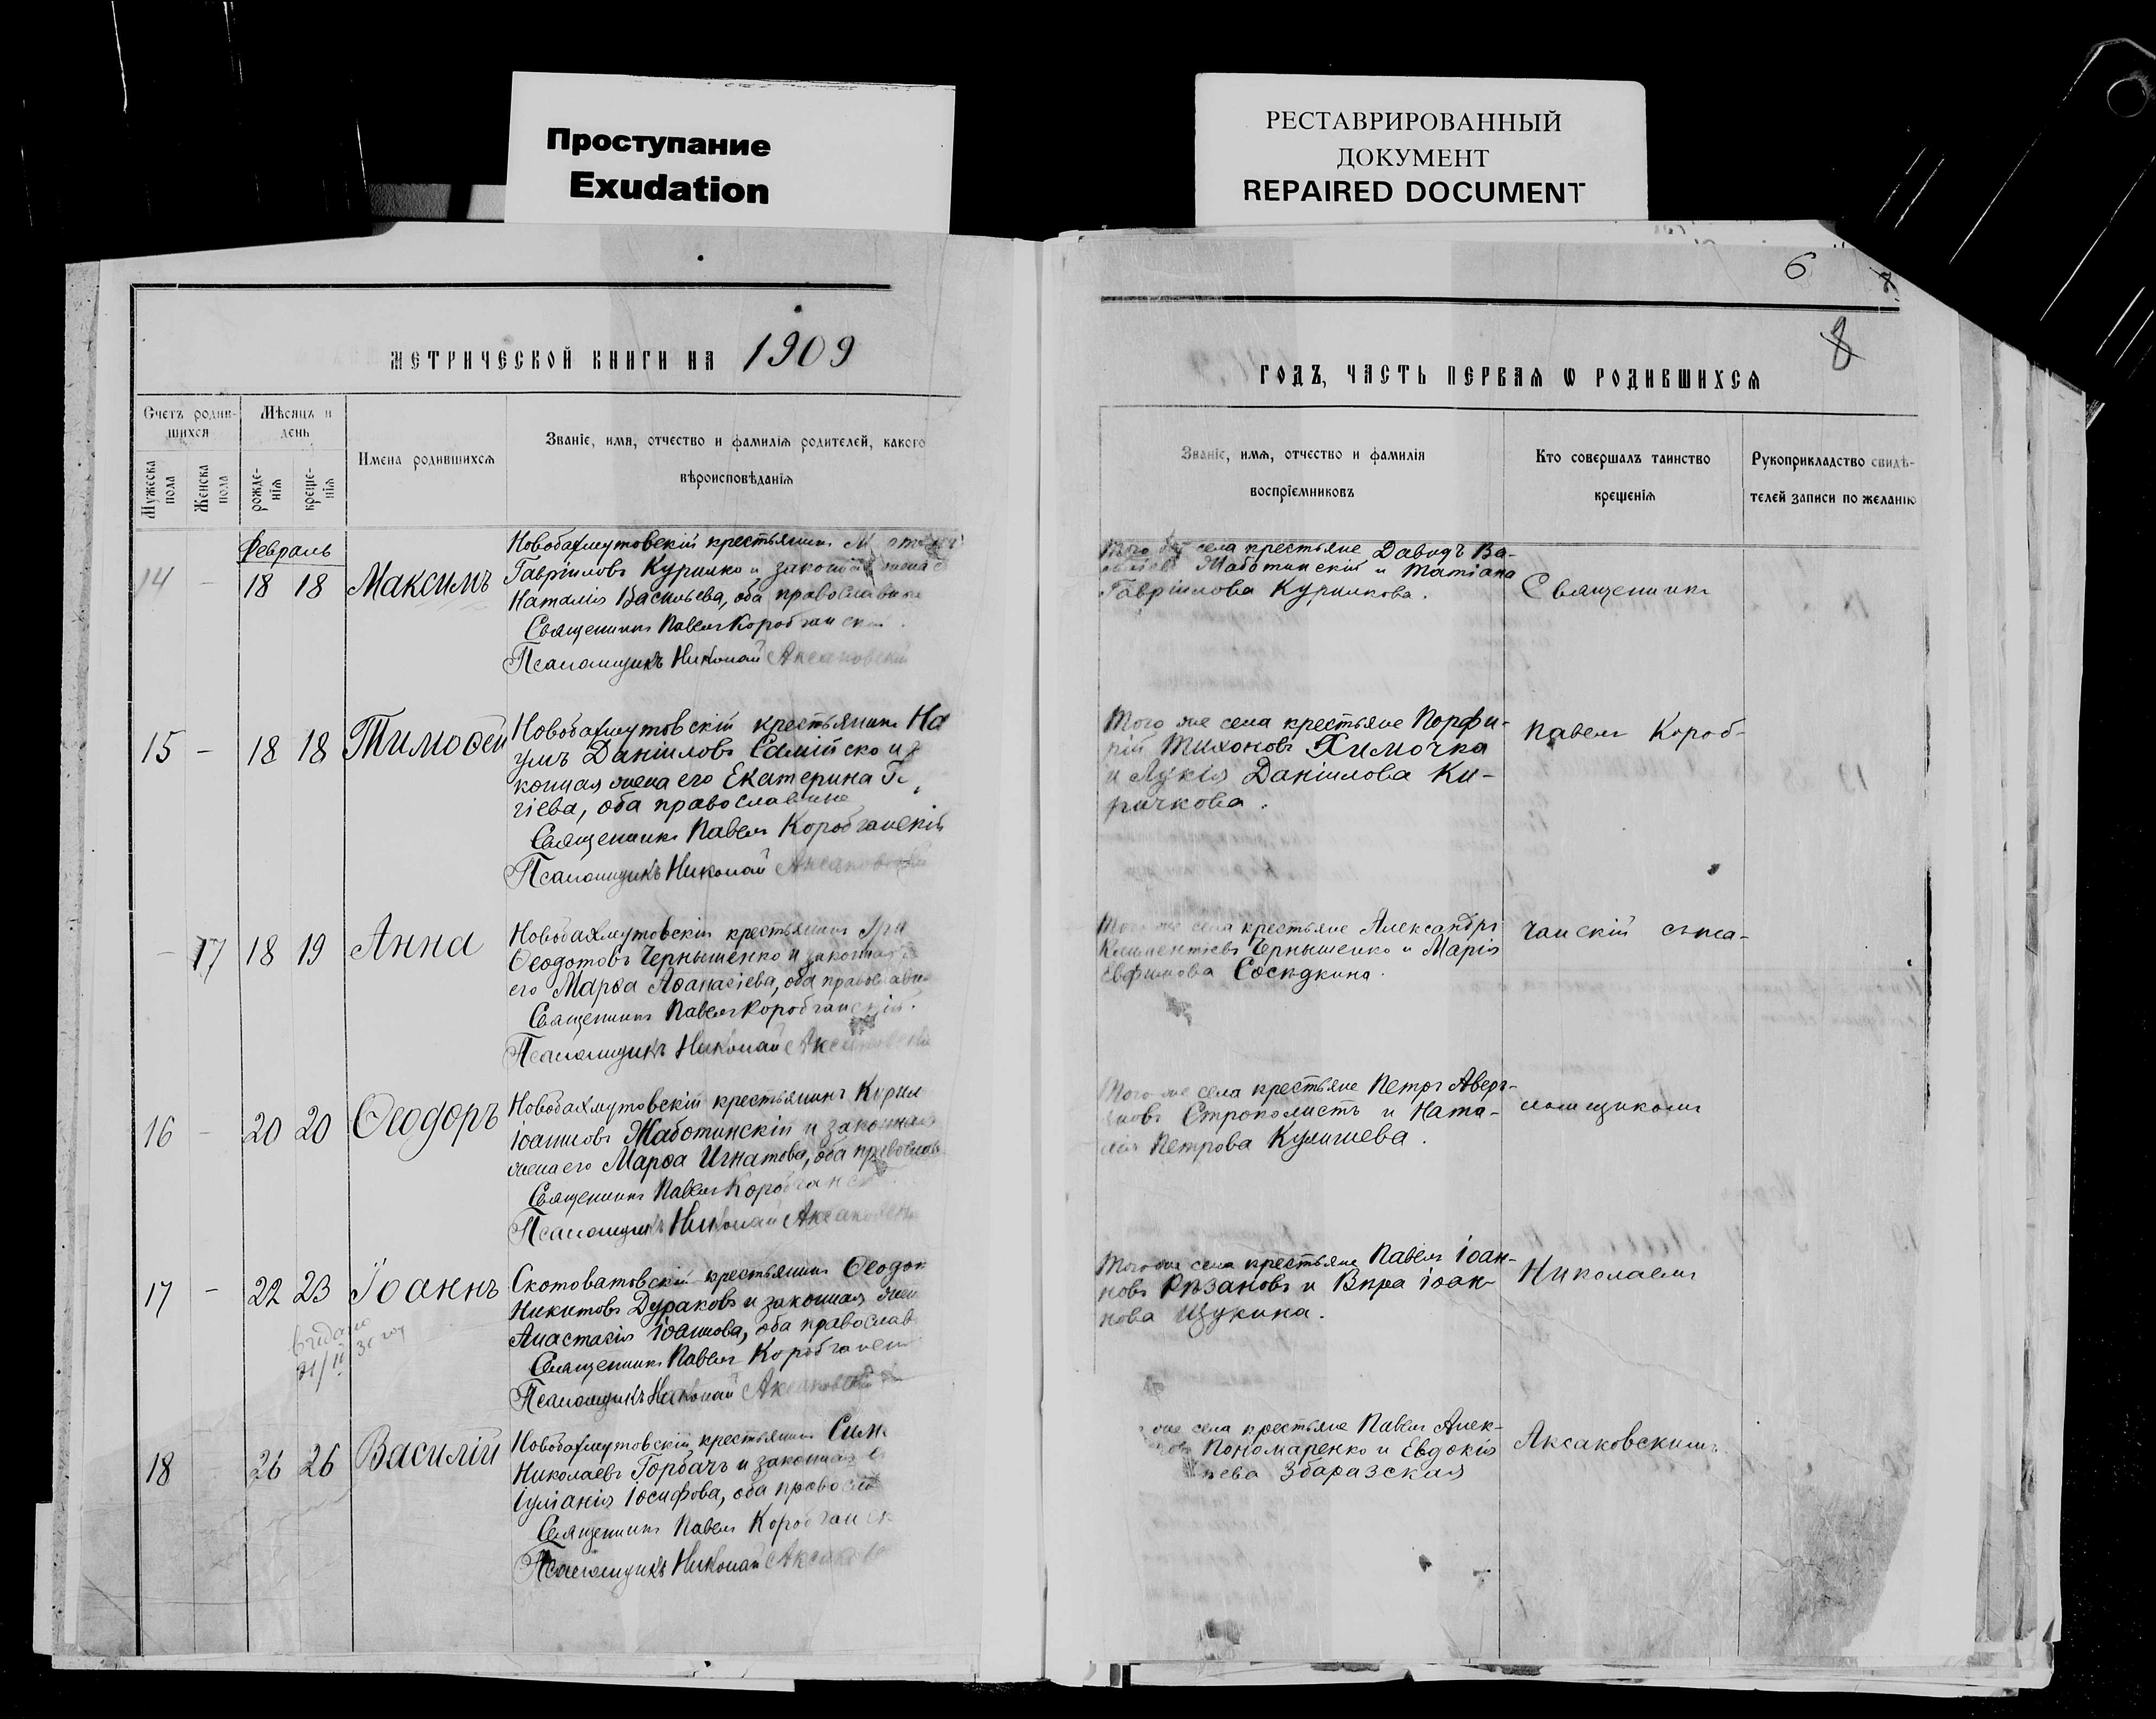 Проступание
Exudation
РЕСТАВРИРОВАННЫЙ
ДОКУМЕНТ
REPAIRED DOCUMENT
6
8
МЕТРИЧЕСКОЙ КНИГИ НА 1909
ГОДЪ, ЧАСТЬ ПЕРВАЯ Ѡ РОДИВШИХСЯ
Счетъ родив-
шихся
Мужеска пола
Женска пола
Мѣсяцъ и
день
рожде-
нія
креще-
нія
Имена родившихся
Званіе, имя, отчество и фамилія родителей, какого
вѣроисповѣданія
Званіе, имя, отчество и фамилія
воспріемниковъ
Кто совершалъ таинство
крещенія
Рукоприкладство свидѣ-
телей записи по желанію
Февраль
14 - 18 18 Максимъ
Новобахмутовскій крестьянинъ
Гавріиловъ Курилко и законная жена
Наталія Васильева, оба православные
Священникъ Павелъ Коробчанскій
Псаломщикъ Николай Аксаковскій
Того же села крестьяне Давидъ Ва-
Жаботинскій и Татіана
Гавріилова Курилкова.
Священникъ
15 - 18 18 Тимоѳей
Новобахмутовскій крестьянинъ На
умъ Даніиловъ и
конная жена его Екатерина
гіева, оба православные
Священникъ Павелъ Коробчанскій
Псаломщикъ Николай Аксаковскій
Того же села крестьяне Порфи-
рій Тихоновъ Химочка
и Лукія Даніилова Ки-
ричкова.
Павелъ Короб-
- 17 18 19 Анна
Новобахмутовскій крестьянинъ
Ѳеодотовъ Чернышенко и законная
его Марѳа Аѳанасіева, оба православные
Священникъ Павелъ Коробчанскій.
Псаломщикъ Николай Аксаковскій
Того же села крестьяне Александръ
Климентіевъ Чернышенко и Марія
Евфимова Сосѣдкина.
чанскій съ пса-
16 - 20 20 Ѳеодоръ
Новобахмутовскій крестьянинъ Кирил
Іоанновъ Жаботинскій и законная
жена его Марѳа Игнатова, оба православ
Священникъ Павелъ Коробчанс
Псаломщикъ Николай Аксаковскій
Того же села крестьяне Петръ Аверь-
яновъ Строколистъ и Ната-
лія Петрова Кулишева.
ломщикомъ
17 - 22 23 Іоаннъ
Скотоватовскій крестьянинъ Ѳеодот
Никитовъ Дураковъ и законная жен
Анастасія Іоаннова, оба православ
Священникъ Павелъ Коробчанскій
Псаломщикъ Николай Аксаковскій
Того же села крестьяне Павелъ Іоан-
новъ Рѣзановъ и Вѣра Іоан-
нова Щукина.
Николаемъ
18 - 26 26 Василій
Новобахмутовскій крестьянинъ
Николаевъ Горбачъ и законная
Іуліанія Іосифова, оба православ
Священникъ Павелъ Коробчанск
Псаломщикъ Николай Аксаков
же села крестьяне Павелъ Алек-
Пономаренко и Евдокія
Збаразская
Аксаковскимъ